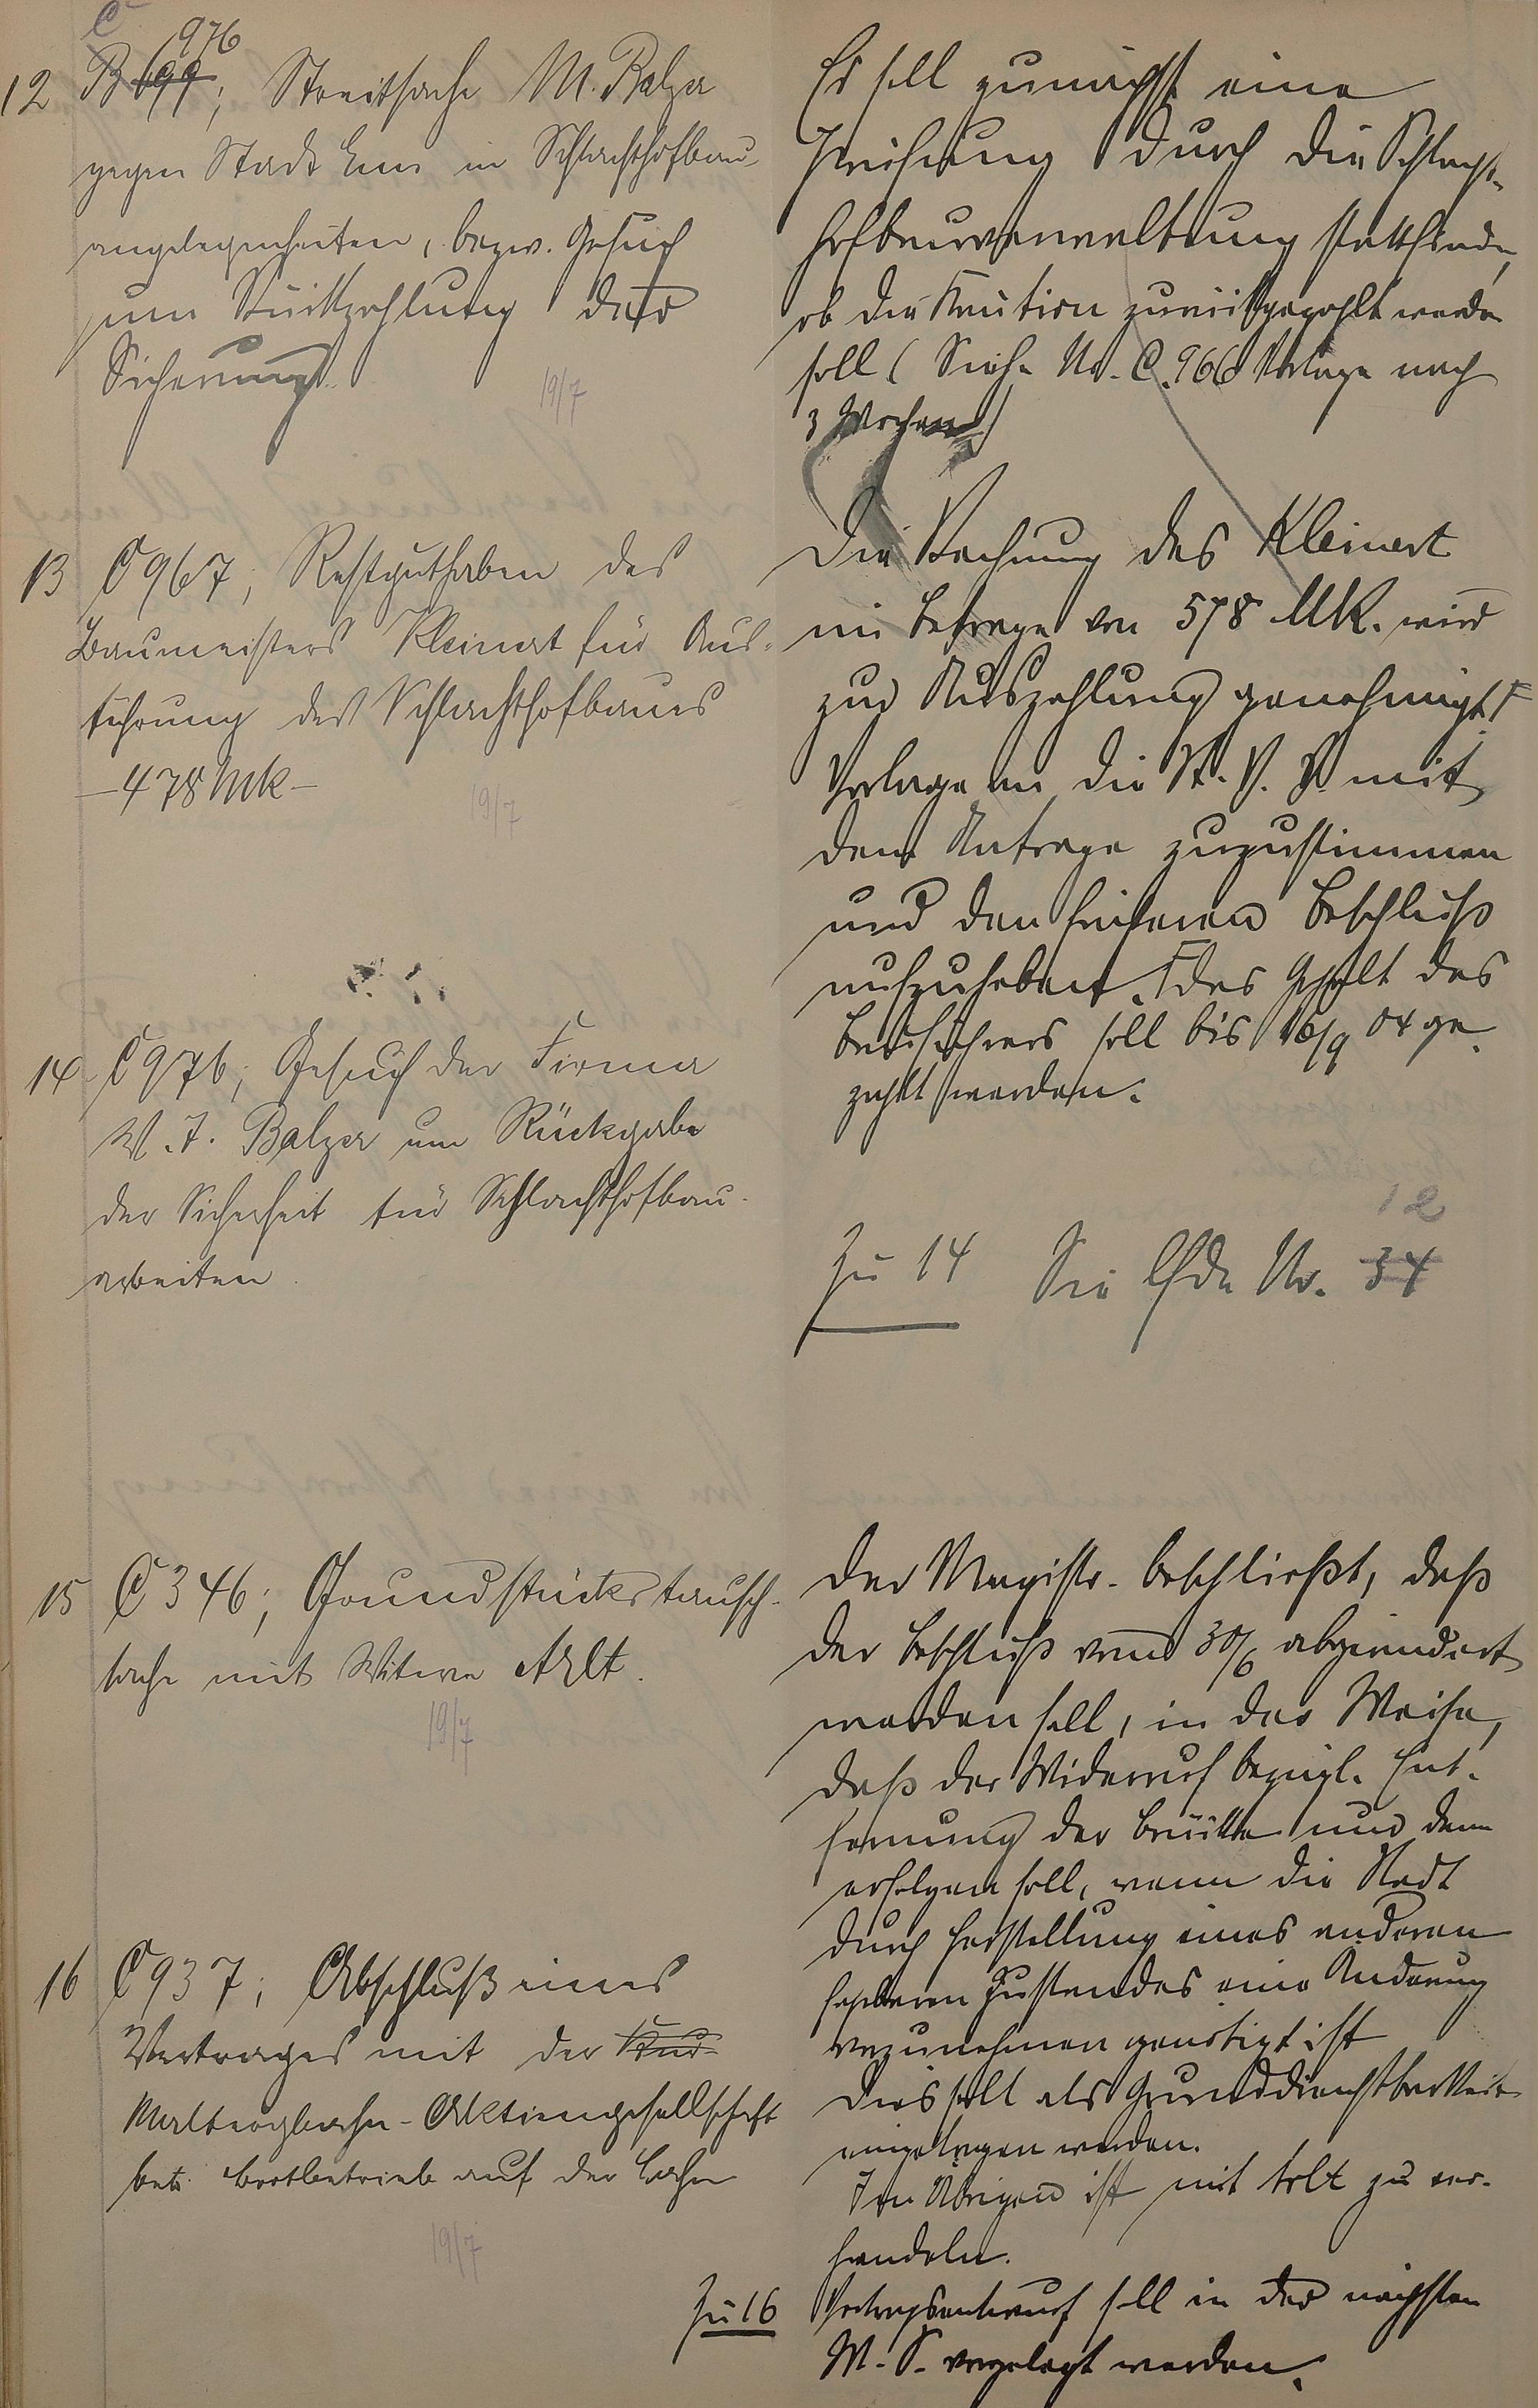 C 976
12 B 699; Streitsache M. Balzer
gegen Stadt Ems in Schlachthofbau-
angelegenheiten, bezw. Gesuch
um Rückzahlung der
Sicherung.
19/7
Es soll zunächst eine
Prüfung durch die Schlacht-
hofbauverwaltung stattfinden,
ob die Kaution zurückgezahlt werden
soll (Siehe No. C. 966 Vorlage nach
3 Wochen)
13 C 967; Restguthaben des
Baumeisters Kleinert für Aus-
führung des Schlachthofbaues
– 478 Mk –
19/7
Die Rechnung des Kleinert
im Betrage von 578 MK. wird
zur Auszahlung genehmigt.
Vorlage an die St. V. V. mit
dem Antrage zuzustimmen
und den früheren Beschluß
aufzuheben. Das Gehalt des
Bauführers soll bis 16/9 04 ge-
zahlt werden.
14 C 976; Gesuch der Firma
W. J. Balzer um Rückgabe
der Sicherheit für Schlachthofbau-
arbeiten.
12
Zu 14 Sie lfde No. 34
15 C 346; Grundstückstausch-
sache mit Witwe Arlt.
19/7
Der Magistr. beschließt, daß
der Beschluß vom 30/6 abgeändert
werden soll, in der Weise,
daß der Widerruf bezügl. Ent-
fernung der Brücke nur dann
erfolgen soll, wenn die Stadt
durch Herstellung eines anderen
Zustandes eine Änderung
vorzunehmen genötigt ist
Dies soll als Grunddienstbarkeit
eingetragen werden.
Im Übrigen ist mit Arlt zu ver-
handeln.
16 C 937; Abschluß eines
Vertrages mit der Kur-
Malbergbahn-Aktiengesellschaft
betr. Bootbetrieb auf der Lahn
19/7
Zu 16 Vertragsentwurf soll in der nächsten
M. S. vorgelegt werden.